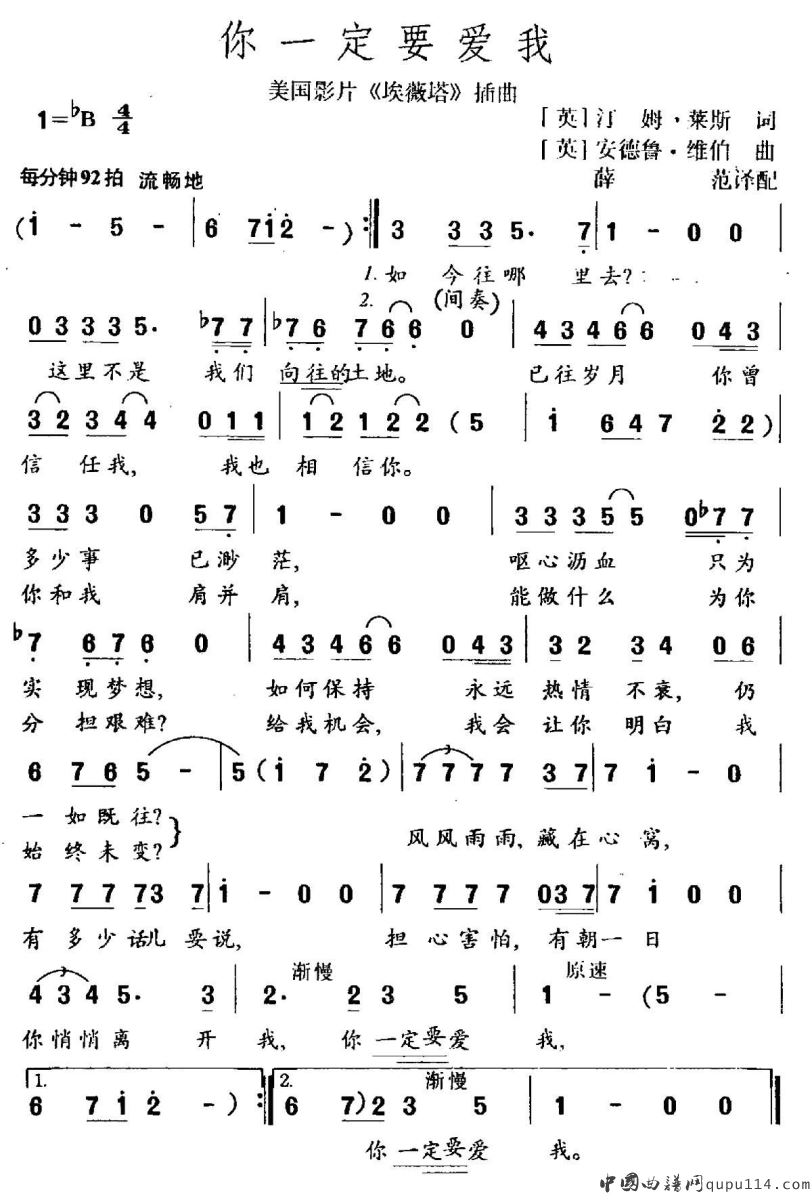 你一定要爱我
美国影片《埃薇塔》插曲
1=♭B 4/4
[英]汀姆·莱斯 词
[英]安德鲁·维伯 曲
薛范译配
每分钟92拍 流畅地
(i - 5 - | 6 7i2 - ) :‖ 3 33 5. 7 | 1 - 0 0
1.如 今往哪 里去?
2. (间奏)
03 335. ♭77 | ♭76 766 0 | 43466 043
这里不是 我们 向往的土地。 已往岁月 你曾
32 344 011 | 12122 (5 | i 647 22)
信 任我, 我也 相 信你。
33 3 0 57 | 1 - 0 0 | 33355 0♭77
多少事 已渺 茫, 呕心沥血 只为
你和我 肩并 肩, 能做什么 为你
♭7 676 0 | 43466 043 | 32 34 06
实 现梦想, 如何保持 永远 热情 不衰, 仍
分 担艰难? 给我机会, 我会 让你 明白 我
6 765 - | 5 (i 7 2) | 7777 37 | 7i - 0
一 如既往?
始 终未变?
风风雨雨, 藏在心 窝,
7 77 73 7 | i - 0 0 | 7 77 7 037 | 7 i 0 0
有 多少 话儿 要说, 担 心害怕, 有朝一 日
渐慢 原速
3
434 5. 3 | 2. 2 3 5 | 1 - (5 -
你悄悄离 开 我, 你 一定要爱 我,
1. 2. 渐慢
6 7i 2 - ) :‖ 6 7)2 3 5 | 1 - 0 0
你 一定要爱 我。
中國曲譜网qupu114.com